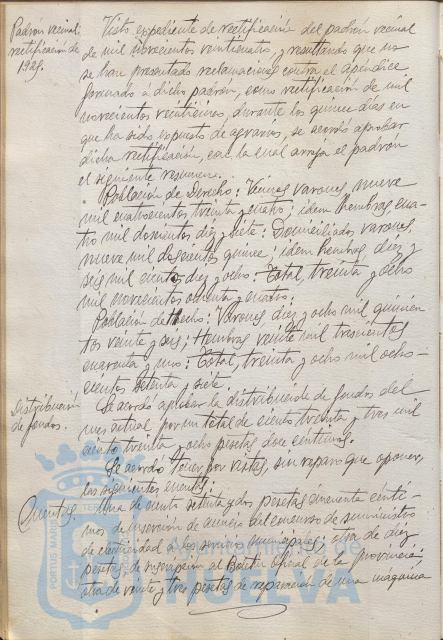 Padrón vecinal:
rectificación de
1925.
Visto expediente de rectificación del padrón vecinal
de mil novecientos veinticuatro, y resultando que no
se han presentado reclamaciones contra el apéndice
formado a dicho padrón, como rectificación de mil
novecientos veinticinco, durante los quince días en
que ha sido expuesto de agravios, se acordó aprobar
dicha rectificación, con la cual arroja el padrón
el siguiente resumen:
Población de Derecho: Vecinos varones, nueve
mil cuatrocientos treinta y cuatro; idem hembras, cua-
tro mil doscientos diez y siete: Domiciliados varones,
nueve mil doscientos quince; idem hembras, diez y
seis mil ciento diez y ocho: Total, treinta y ocho
mil novecientos ochenta y cuatro:
Población de Hecho: Varones diez y ocho mil quinien
tos veinte y seis; Hembras veinte mil trescientos
cuarenta y uno: Total, treinta y ocho mil ocho-
cientos sesenta y siete.
Distribución
de fondos.
Se acordó aprobar la distribución de fondos del
mes actual por un total de ciento treinta y tres mil
ciento treinta y ocho pesetas doce céntimos.
Se acordó tener por vistas, sin reparo que oponer,
las siguientes cuentas:
Cuentas.
Una de ciento setenta y dos pesetas cincuenta cénti-
mos de inserción de anuncio del concurso de suministro
de electricidad a los servicios municipales; otra de diez
pesetas de suscripción al Boletín Oficial de la provincia;
otra de veinte y tres pesetas de reparación de una máquina
PORTUS MARIS
Ayuntamiento de
HUELVA